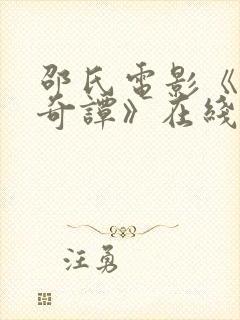 邵氏電影《
奇譚》在綫
汪勇